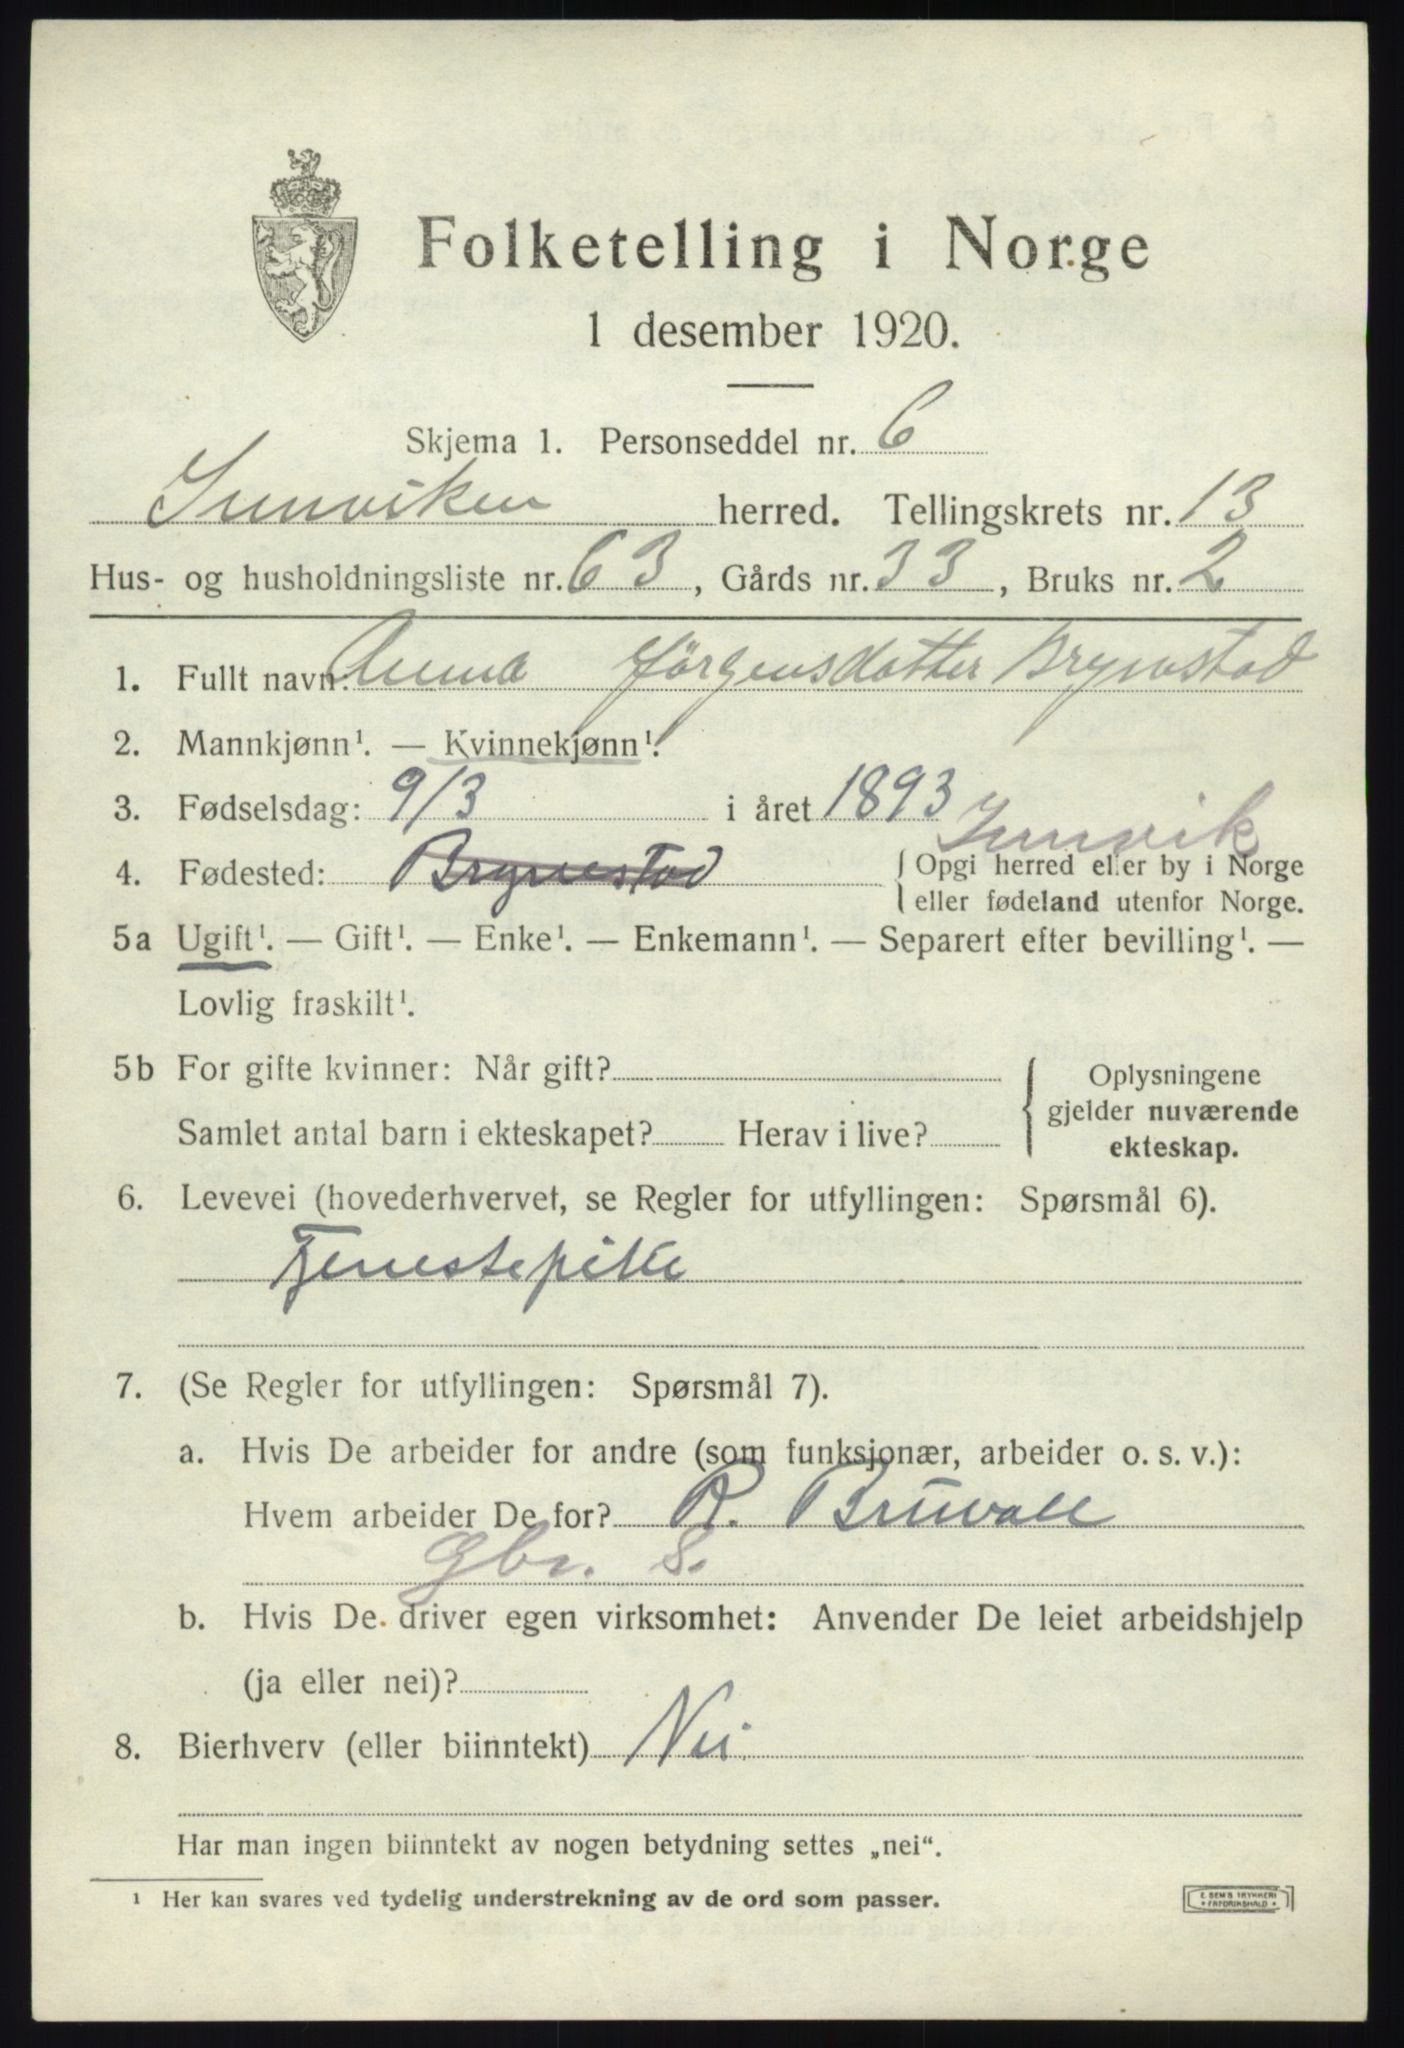 Folketelling i Norge
1 desember 1920.
Skjema 1. Personseddel nr. 6
Innviken herred. Tellingskrets nr. 13
Hus- og husholdningsliste nr. 63, Gårds nr. 33, Bruks nr. 2
1. Fullt navn: Anna Jørgensdatter Brynestad
2. Mannkjønn¹. — Kvinnekjønn¹.
3. Fødselsdag: 9/3 i året 1893
Innvik
4. Fødested: Brynestad { Opgi herred eller by i Norge
eller fødeland utenfor Norge.
5a Ugift¹. — Gift¹. — Enke¹. — Enkemann¹. — Separert efter bevilling¹. —
Lovlig fraskilt¹.
5b For gifte kvinner: Når gift?
Samlet antal barn i ekteskapet? Herav i live?
{ Oplysningene
gjelder nuværende
ekteskap.
6. Levevei (hovederhvervet, se Regler for utfyllingen: Spørsmål 6).
Tjenestepike
7. (Se Regler for utfyllingen: Spørsmål 7).
a. Hvis De arbeider for andre (som funksjonær, arbeider o. s. v.):
Hvem arbeider De for? R. Bruvoll
Gbr. S.
b. Hvis De driver egen virksomhet: Anvender De leiet arbeidshjelp
(ja eller nei)?
8. Bierhverv (eller biinntekt) Nei
Har man ingen biinntekt av nogen betydning settes „nei“.
¹ Her kan svares ved tydelig understrekning av de ord som passer.
E. SEM'S TRYKKERI
* FREDRIKSHALD *